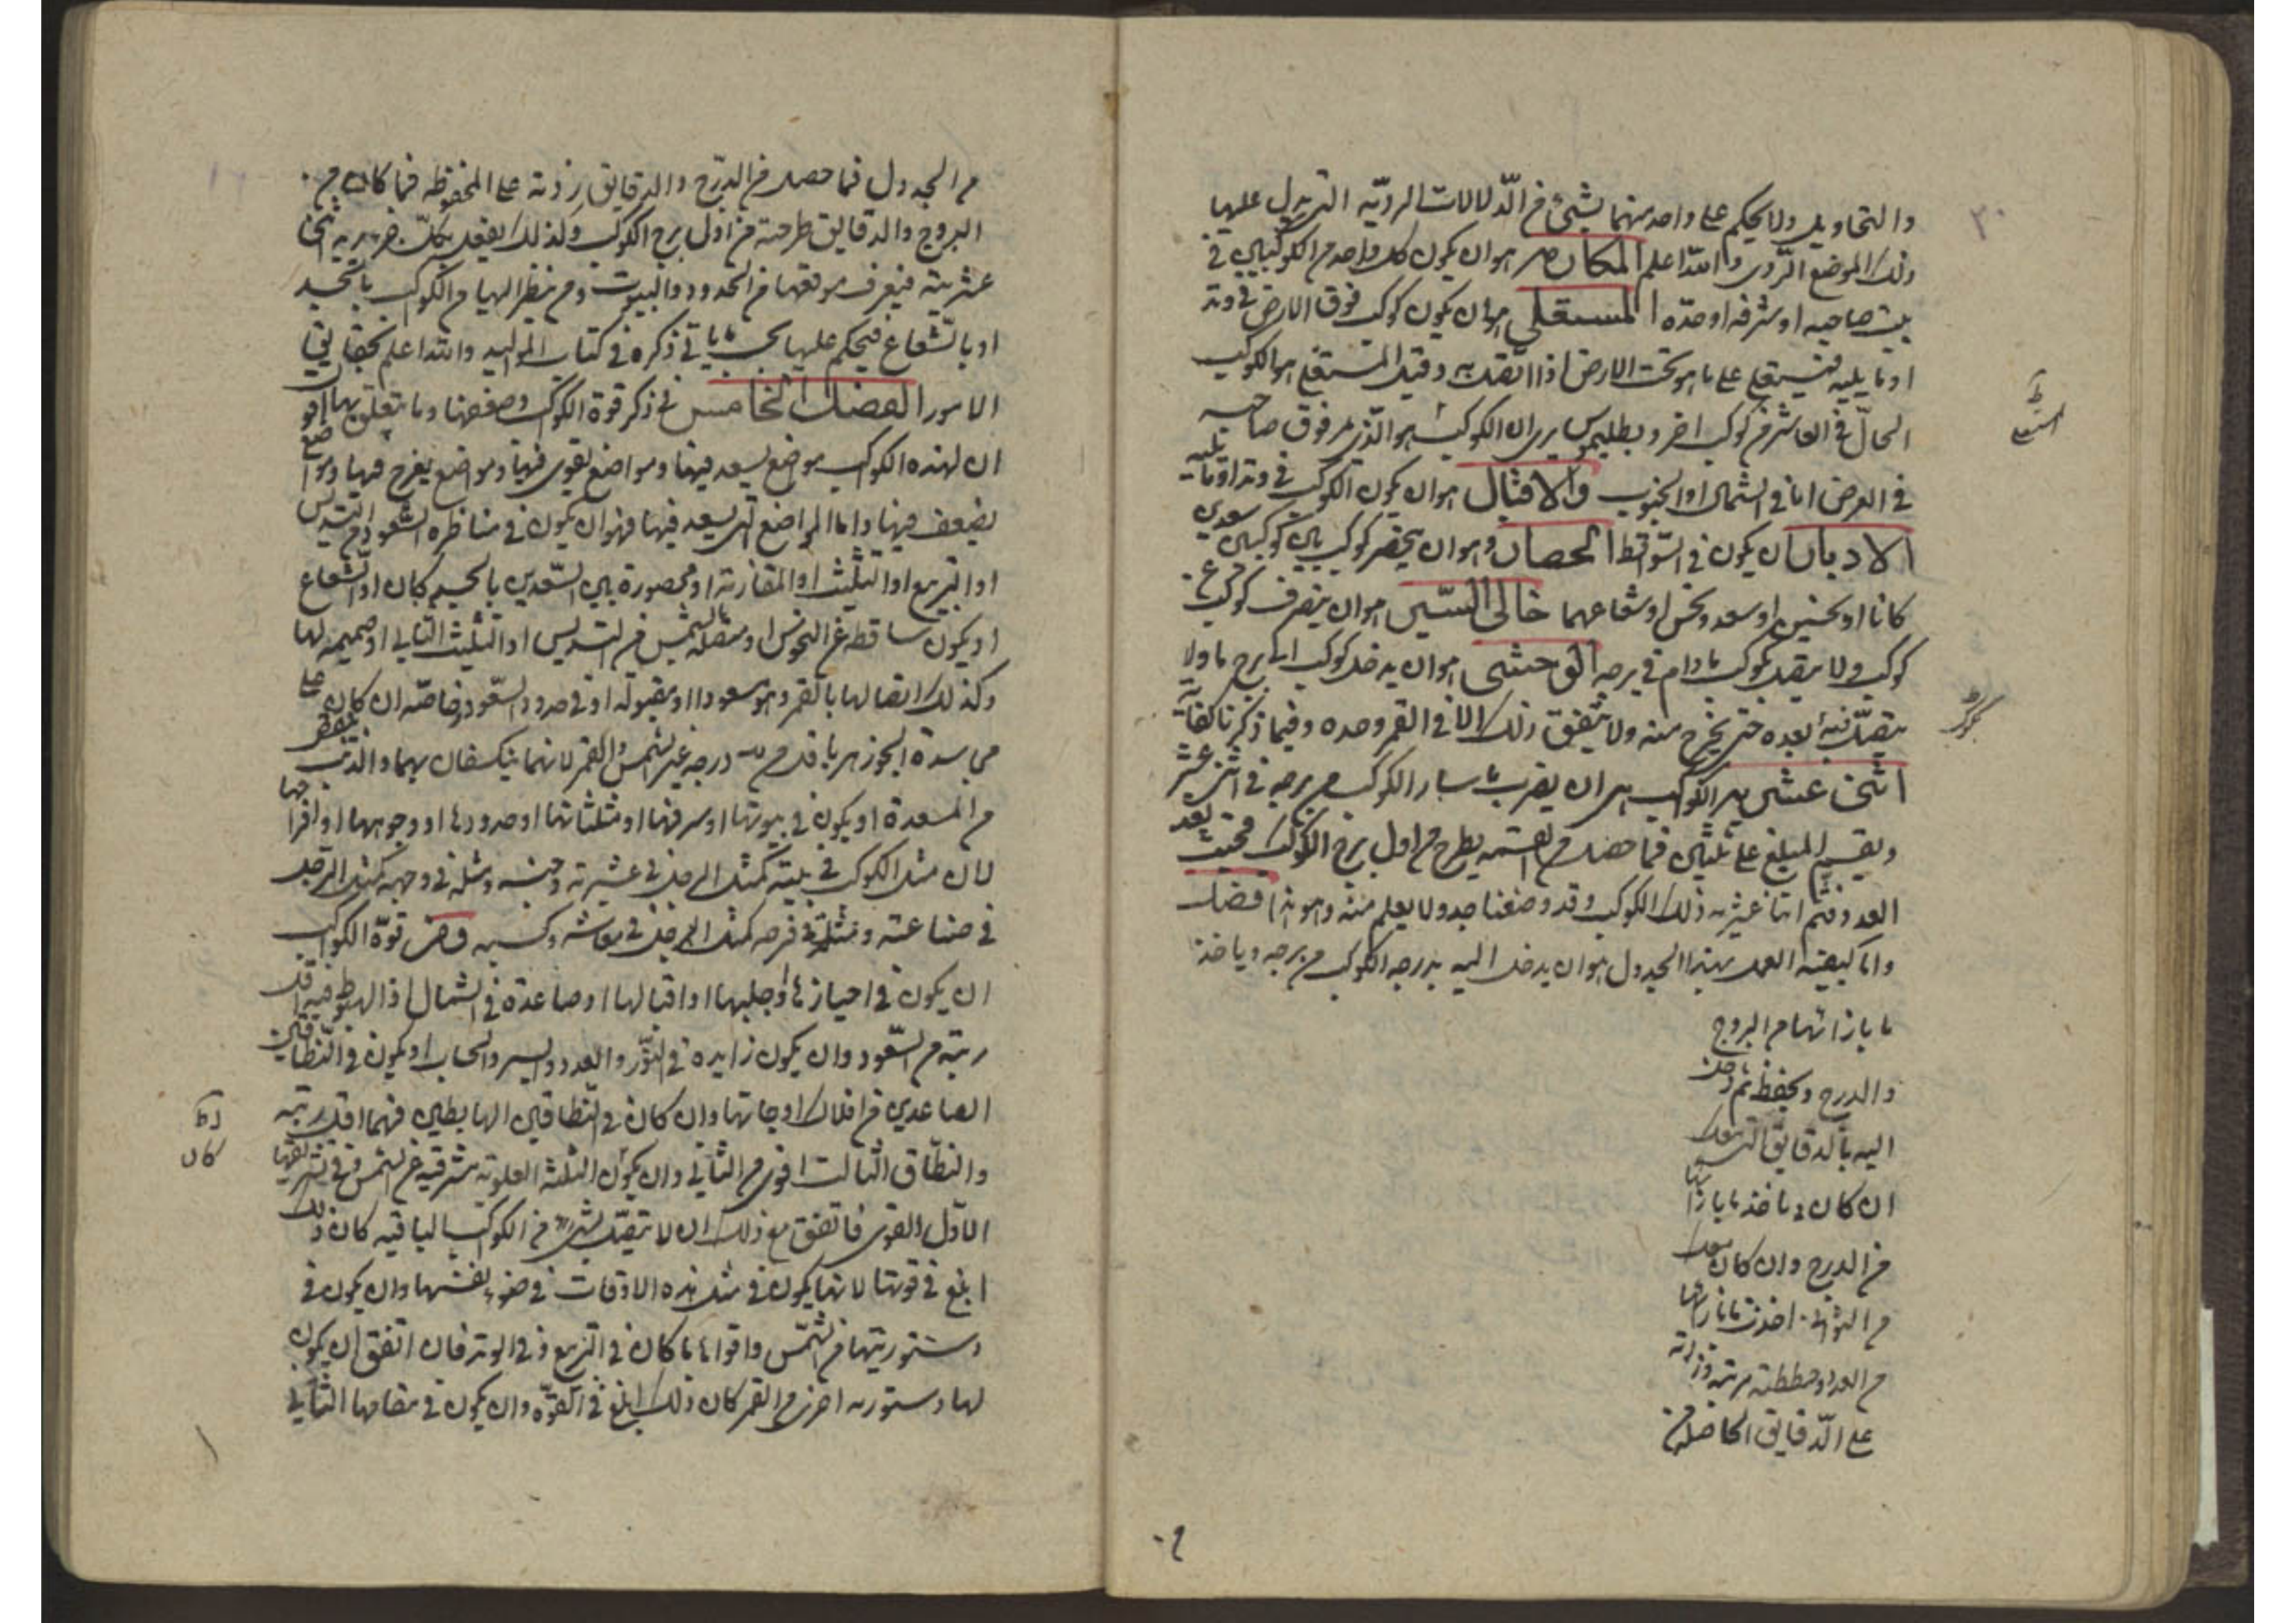 ٣٠
والتحاويل ولا يحكم على واحد منهما بشيء من الدلالات الردية التي يدل عليها
ذلك الموضع الردى والله اعلم المكان هو ان يكون كل واحد من الكوكبين في
بيت صاحبه او شرفه او حده المستعلى هو ان يكون كوكب فوق الارض في وتد
او ما يليه فيستعلى على ما هو تحت الارض اذا اتصل به وقيل المستعلى هو الكوكب
الحال في العاشر من كوكب اخر وبطليموس يرى ان الكوكب هو الذي مر فوق صاحبه
في العرض اما في الشمال او الجنوب والاقبال هو ان يكون الكوكب في وتد او ما يليه
الادبار ان يكون في السواقط الحصار وهو ان يحضر كوكب بين كوكبين سعدين
كانا او نحسين او سعد ونحس او شعاعهما خالى السير هو ان ينصرف كوكب عن
كوكب ولا يتصل بكوكب ما دام في برجه الوحشى هو ان يدخل كوكب الى برج ما ولا
يتصل فيه بعده حتى يخرج منه ولا يتفق ذلك الا في القمر وحده وفيما ذكرنا كفاية
اثنى عشرية الكوكب هي ان يضرب ما سار الكوكب من برجه في اثنى عشر
ويقسم المبلغ على ثلثين فما حصل من القسمة يطرح من اول برج الكوكب فحيث نفد
العدد فثم اثنا عشرية ذلك الكوكب وقد وضعنا جدولا يعلم منه وهو هذا فصل
واما كيفية العمل بهذا الجدول هو ان يدخل اليه بدرجه الكوكب من برجه وياخذ
ما بازائها من البروج
والدرج ويحفظ ثم دخل
اليه بالدقايق التي معك
ان كان د ناخذ ما بازائها
من الدرج وان كان معك
من الثوانى اخذت ما بازائها
من العدد وحططته مرتبة وزدته
على الدقايق الحاصلة من
من الجدول فما حصل من الدرج والدقايق زدته على المحفوظه فما كان من
البروج والدقايق طرحته من اول برج الكوكب وكذلك يفعل بكل جزء يريد اثنا
عشريته فيعرف موقعها من الحدود والبيوت ومن ينظر اليها من الكواكب بالجسد
او بالشعاع فيحكم عليها بحسب ما ياتي ذكره في كتاب المواليد والله اعلم بحقايق
الامور الفصل الخامس في ذكر قوة الكواكب وضعفها وما يتعلق بها
ان لهذه الكواكب مواضع يسعد فيها ومواضع يقوى فيها ومواضع يفرح فيها ومواضع
يضعف فيها واما المواضع التي يسعد فيها فهو ان يكون في مناظره السعود من التسديس
او التربيع او التثليث او المقارنة او محصورة بين السعدين بالجسم كان او الشعاع
او يكون ساقطه عن النحوس او متصلة بالشمس من التسديس او التثليث الثاني او صميمه لها
وكذلك اتصالها بالقمر وهو مسعودا او مقبوله او في حدود السعود خاصه ان كان
في سدة الجوزهر باقل من درجه غير الشمس والقمر لانهما ينكسفان بهما والذنب
من المسعدة او يكون في بيوتها او شرفها او مثلثاتها او حدودها او وجوهها او افراحها
لان مثل الكوكب في بيته كمثل الرجل في عشيرته وجنسه ومثله في وجهه كمثل الرجل
في صناعته ومثله في فرحه كمثل الرجل في معاشه وكسبه وفي قوة الكواكب
ان يكون في احيازها او جلبها او اقبالها او صاعدة في الشمال اذ الهبوط فيه اقل
رتبة من السعود وان يكون زايدة في النور والعدد والسير والحساب او يكون في النطاقين
الصاعدين من افلاك اوجاتها وان كان في النطاقين الهابطين فهما اقل رتبه
والنطاق الثالث اقوى من الثاني وان يكون الثلثة العلوية شرقيه عن الشمس في تشريقها
الاول القوى فاتفق مع ذلك ان لا يتصل بشيء من الكواكب الباقيه كان ذلك
ابلغ في قوتها لانها يكون في مثل هذه الاوقات في ضوء نفسها وان يكون في
دستوريتها من الشمس واقواها ما كان في التربيع وفي الوتد فان اتفق ان يكون
لها دستوريه اخرى من القمر كان ذلك ابلغ في القوة وان يكون في مقامها الثاني
كان